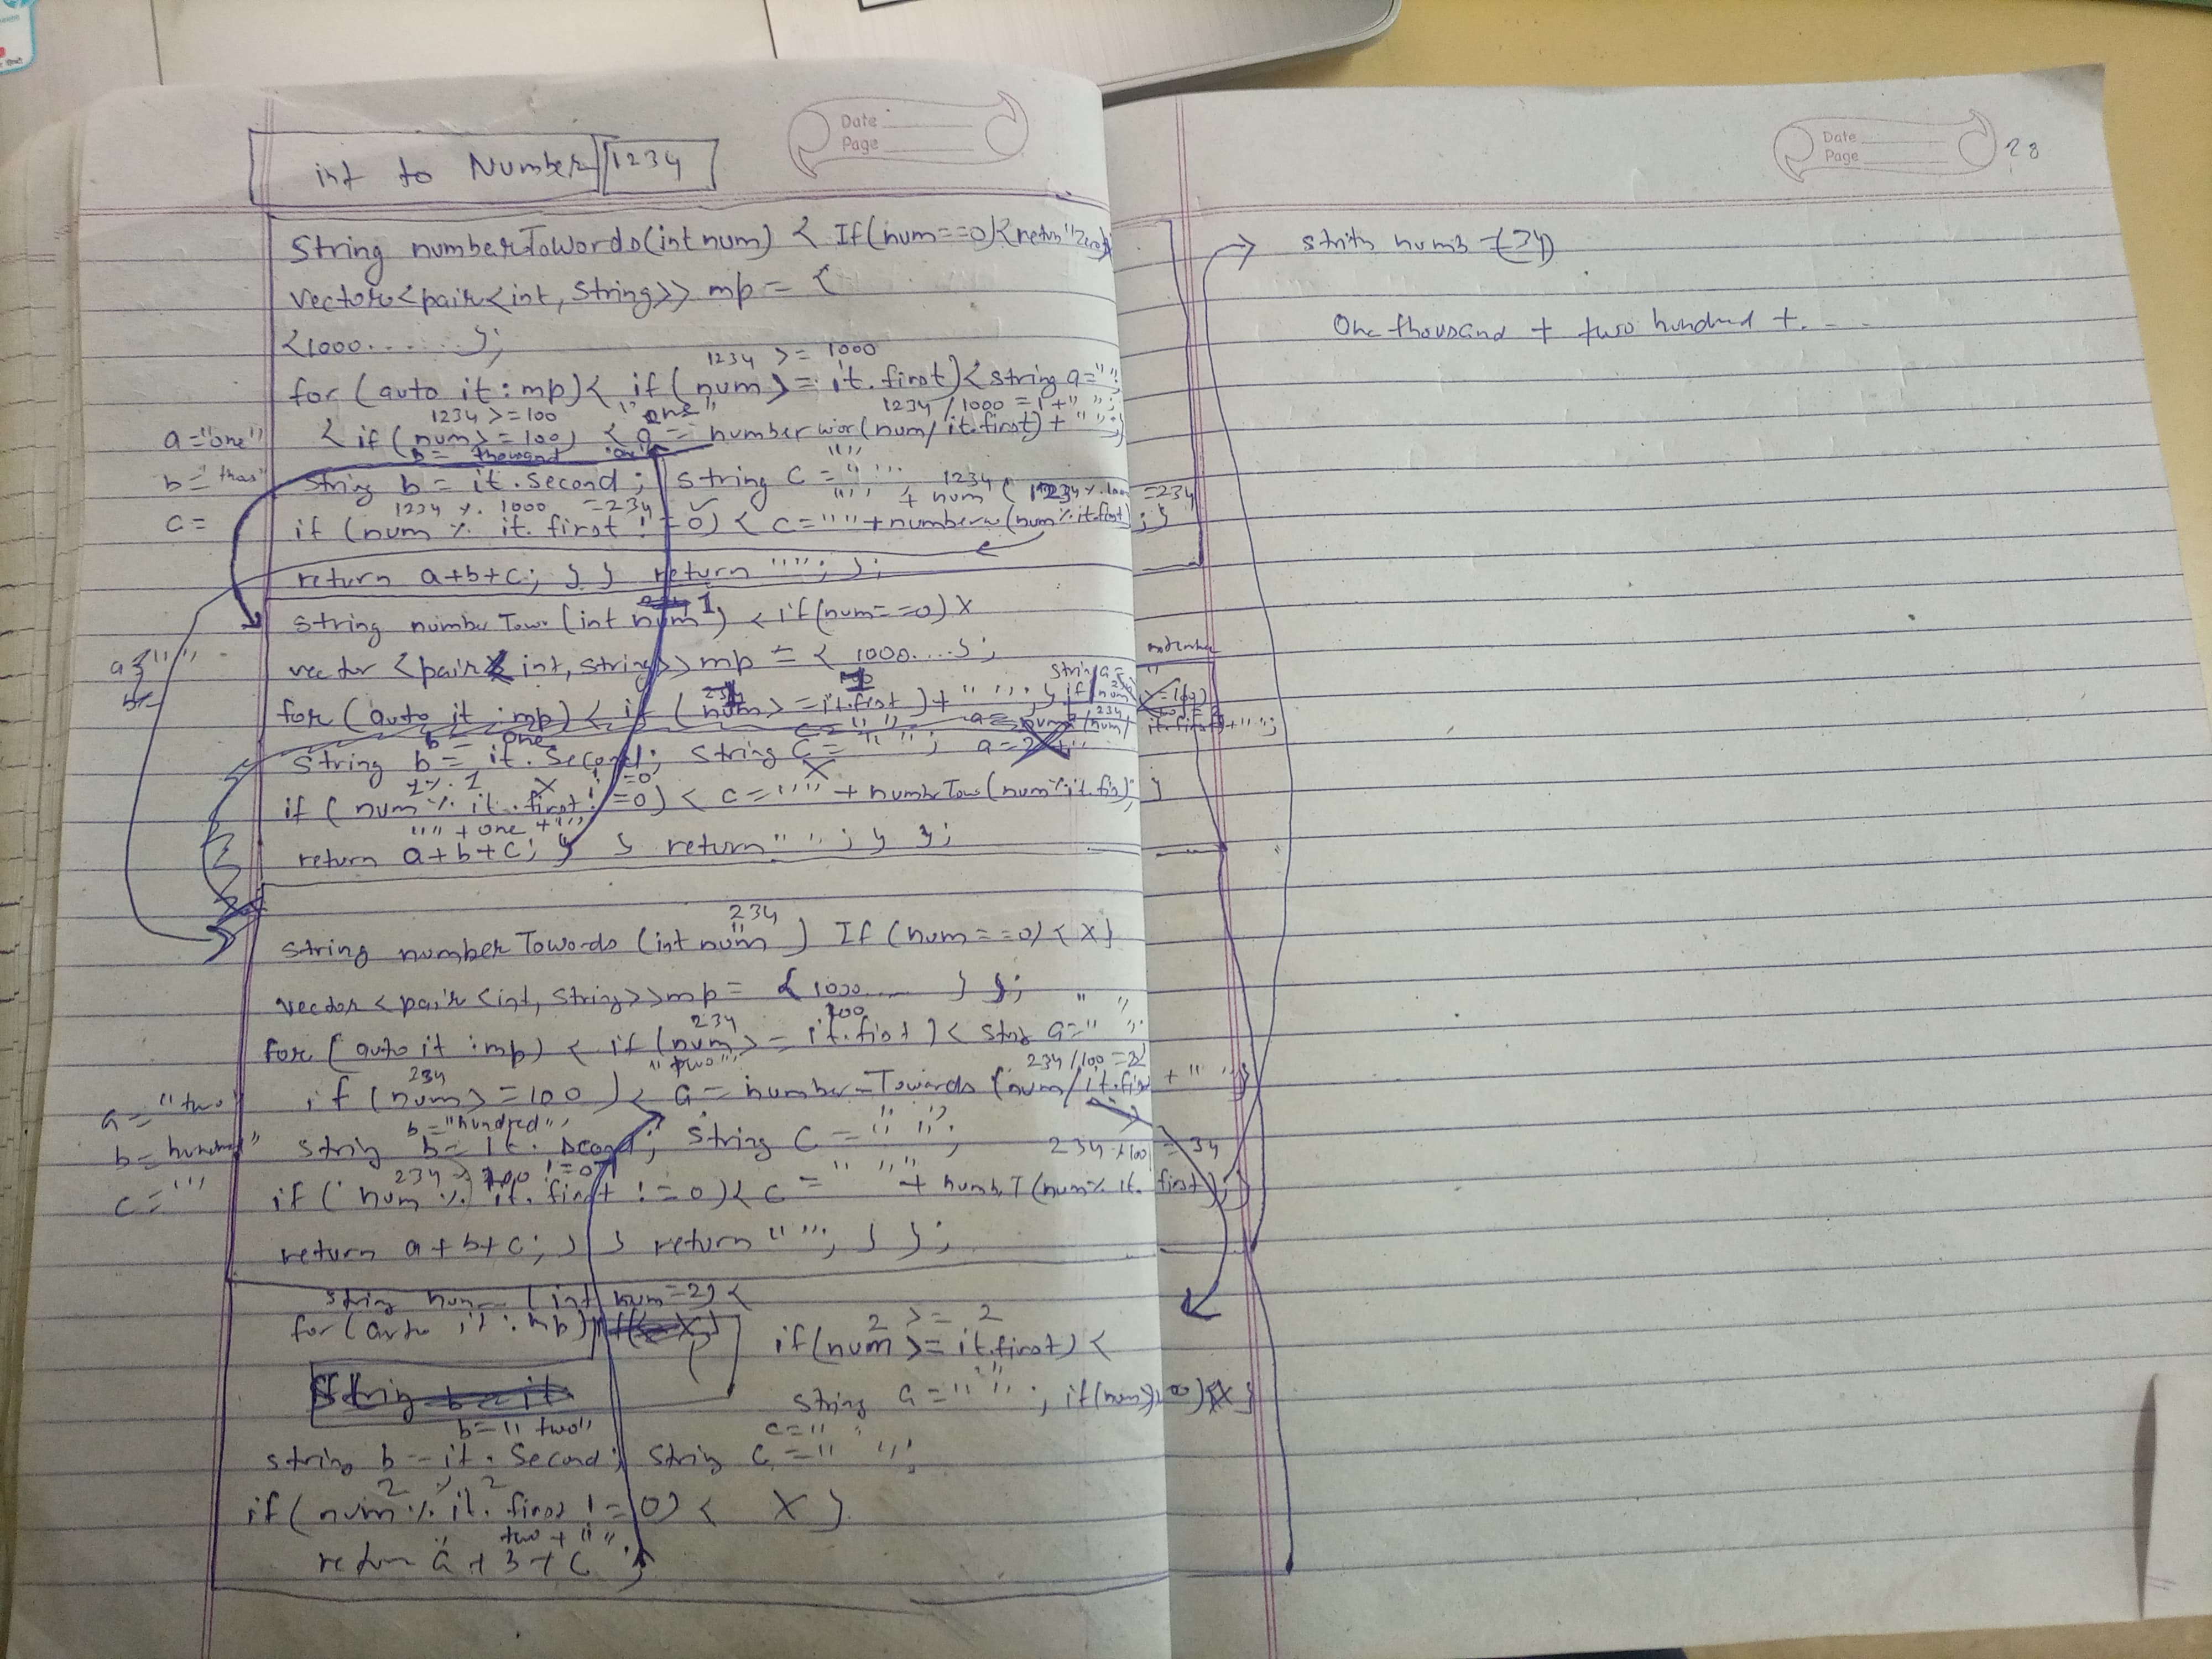 Date
Page
int to Number 1234
String numberToWords(int num) { If(num==0){return "Zero"}
vector<pair<int, String>> mp = {
{1000.......};
1234 >= 1000
for (auto it : mp){ if (num >= it.first){ string a="";
1234 >=100 "one" 1234 / 1000 = 1 + " ";
a="one" { if (num >= 100) { a = number wor(num/it.first) + " ";}
b = thousand "one"
b = "thou" String b = it.second; string c = "";
1234 % 1000 = 234 " " + num ( 1234 % 1000 = 234
c = if (num % it.first != 0) { c = " " + numberw(num % it.first); }
return a+b+c; } } return ""; };
1
string numberTow (int num) { if(num==0) X
a = ""
vector <pair< int, string>> mp = { 1000....};
b =
for (auto it : mp) { if (num >= it.first) + " "; }
b = one
String b = it.Second; String C = "";
1 % 1 X != 0
if ( num % it.first != 0) { c = " " + numbeTow(num % it.fis); }
"" + one + ""
return a+b+c; } } return ""; } };
234
string numberTowords (int num ) If (num==0) { X }
vector <pair <int, String>> mp = { 1000.... } };
234 100
for ( auto it : mp) { if (num >= it.fist ) { strig a="";
234 "two" 234 / 100 = 2
if (num >= 100 ) { a = number-Towards (num/it.first + " ");}
a = "two"
b = "hundred"
b = hundred" string b = it. second; string c = "";
234 % 100 != 0 234 % 100 = 34
c = "" if ( num % it.first != 0) { c = " " + numbT (num % it. first); }
return a+b+c; } } return ""; } };
string num (int num=2) {
for (auto it : mp)
2 >= 2
if(num >= it.first) {
string a = ""; if(num>=100){X}
b = "two" c = ""
string b = it.Second; string c = "";
2 % 2
if ( num % it. first != 0) { X }
two + ""
return a + b + c }
Date
Page
28
string numb = (34)
One thousand + two hundred + . - -